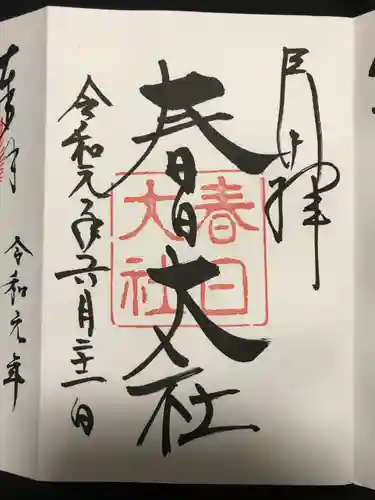 春日大社
春日
大社
令和元年六月二十一日
奉拝
令和元年